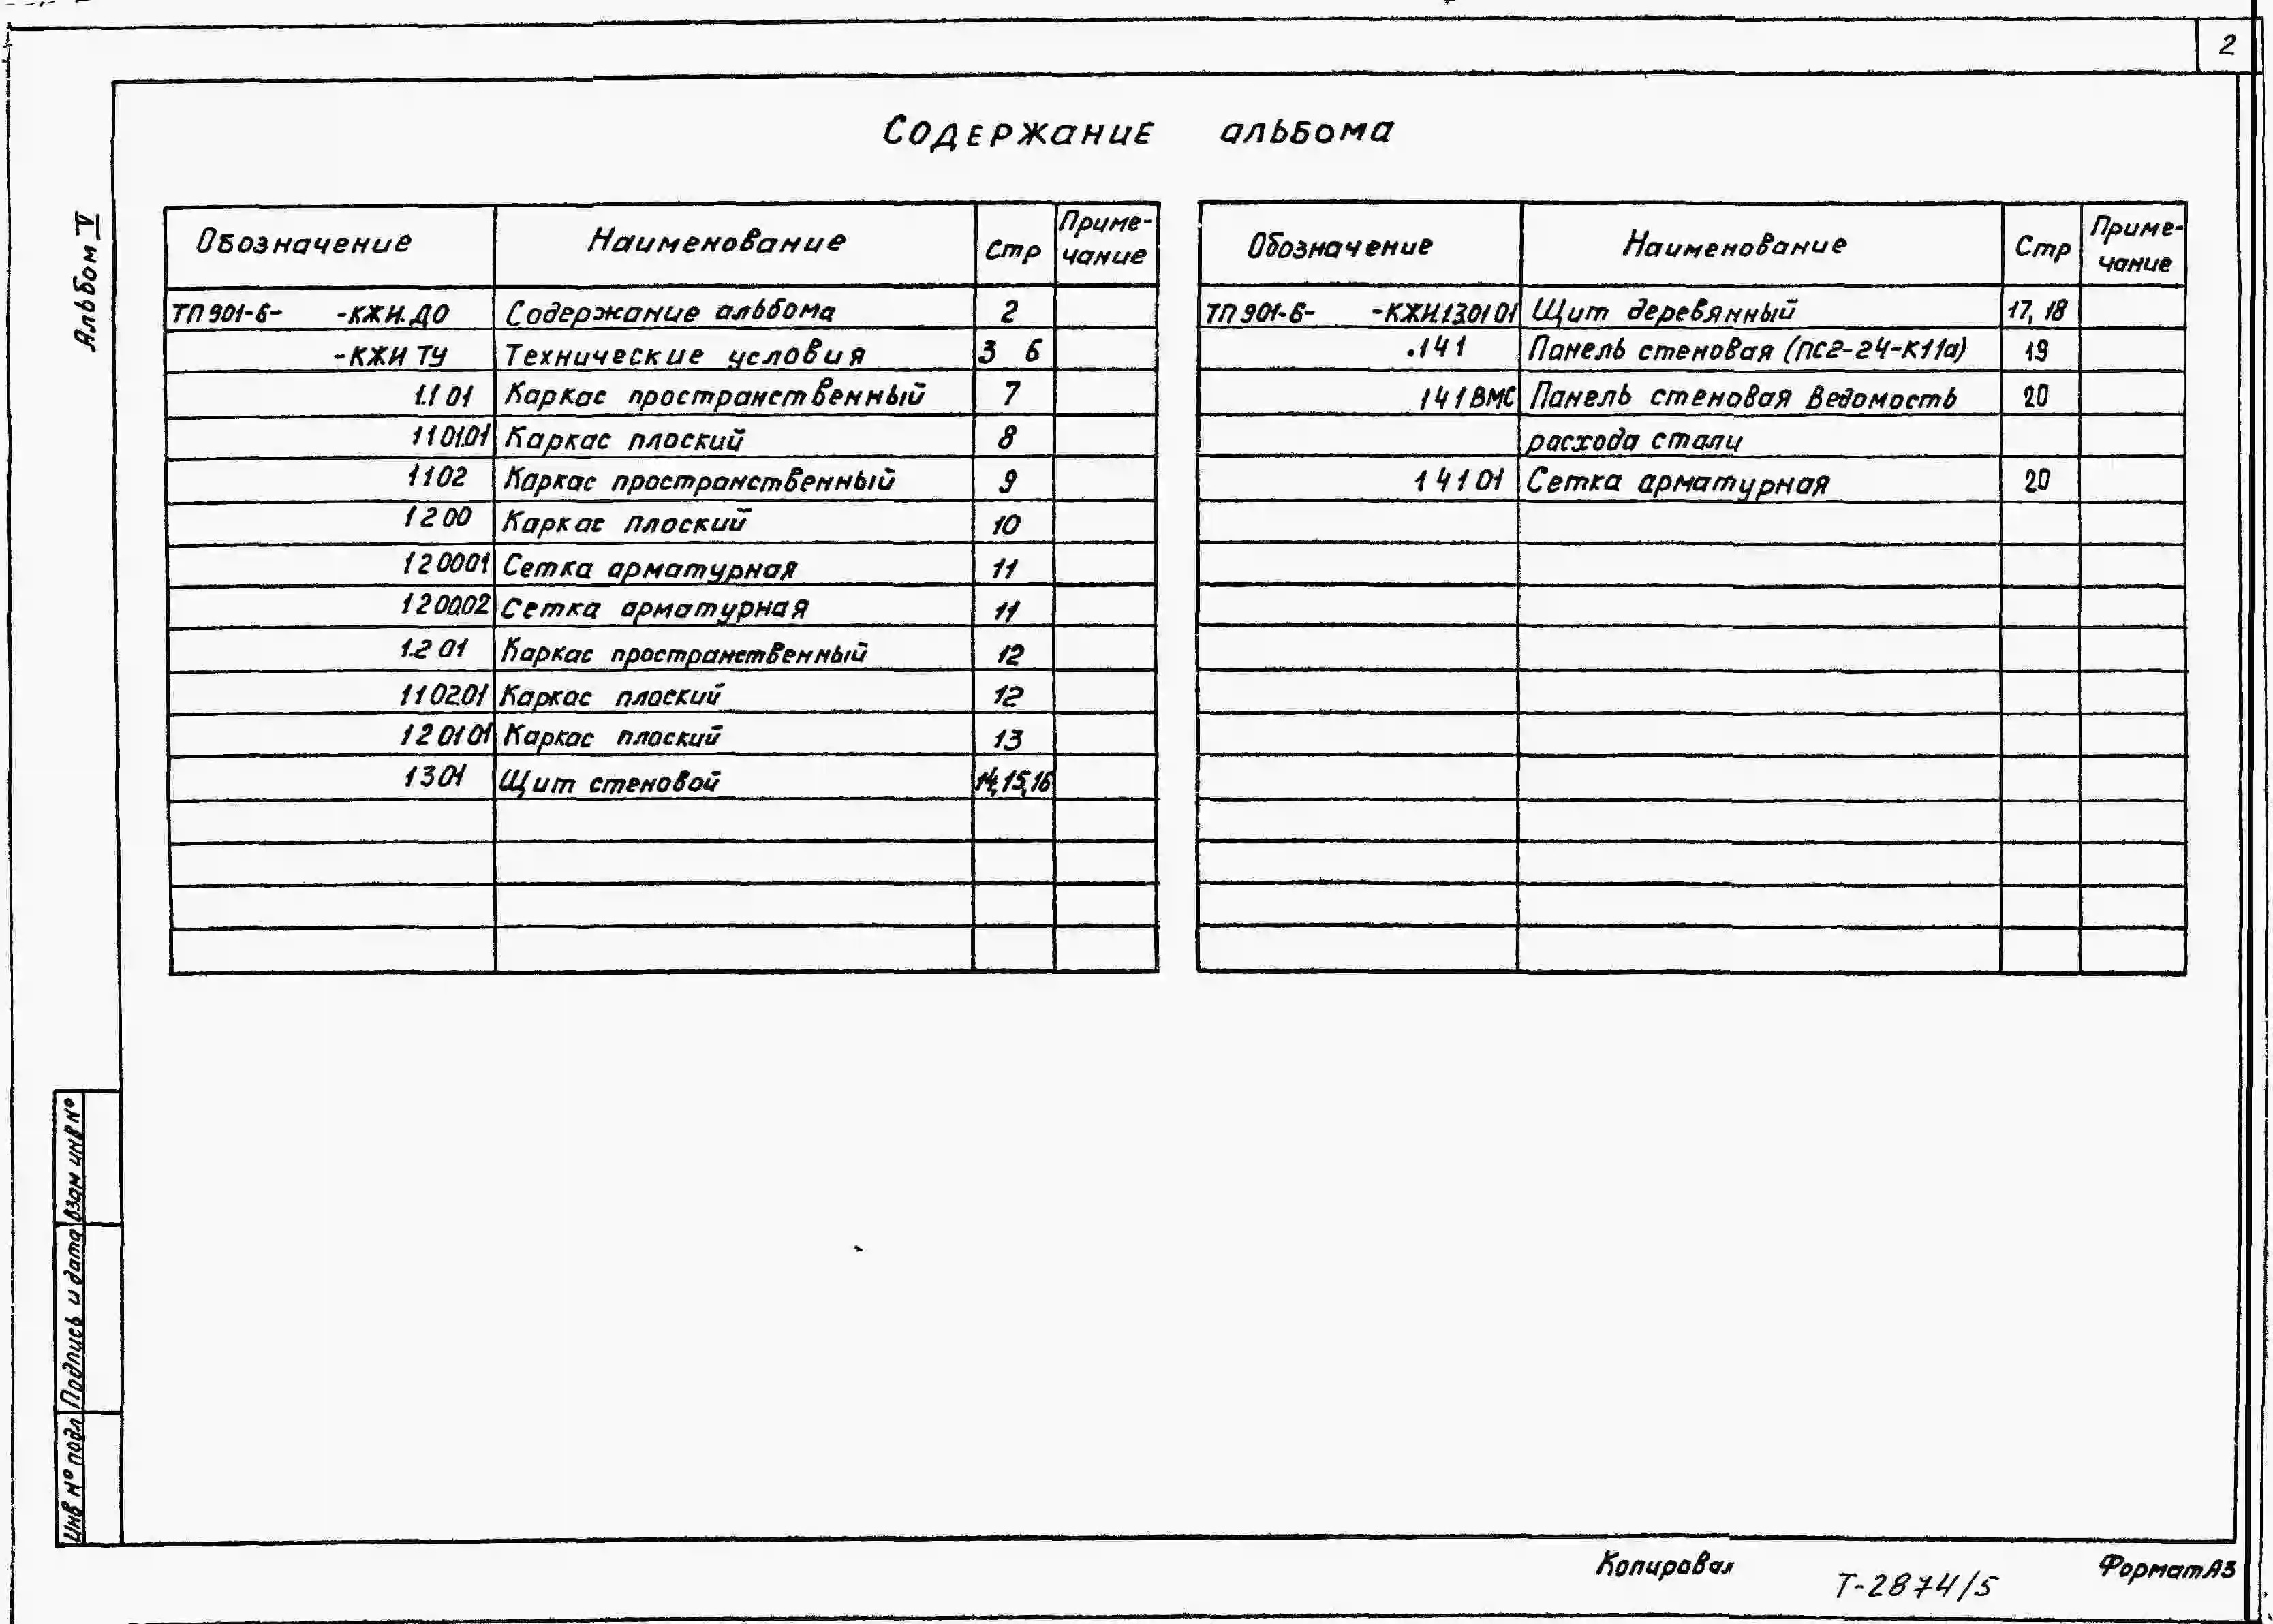 2
Содержание альбома
Альбом V
Обозначение Наименование Стр Приме-
чание
ТП 901-6- -КЖИ.ДО Содержание альбома 2
-КЖИ ТУ Технические условия 3 6
1.1 01 Каркас пространственный 7
1 1 01.01 Каркас плоский 8
1 1 02 Каркас пространственный 9
1 2 00 Каркас плоский 10
1 2 00 01 Сетка арматурная 11
1 2 00.02 Сетка арматурная 11
1.2 01 Каркас пространственный 12
1 1 02.01 Каркас плоский 12
1 2 01 01 Каркас плоский 13
1 3 01 Щит стеновой 14,15,16
Обозначение Наименование Стр Приме-
чание
ТП 901-6- -КЖИ.1.3.01 01 Щит деревянный 17, 18
.1 4 1 Панель стеновая (ПС2-24-К11а) 19
1 4 1 ВМС Панель стеновая Ведомость 20
расхода стали
1 4 1 01 Сетка арматурная 20
Взам инв №
Подпись и дата
Инв № подл
Копировал
Т-2874/5
Формат А3